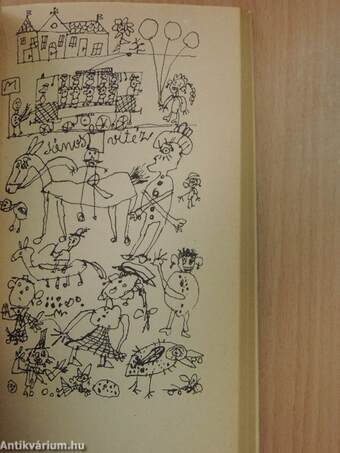 M
János vitéz
Antikvárium.hu